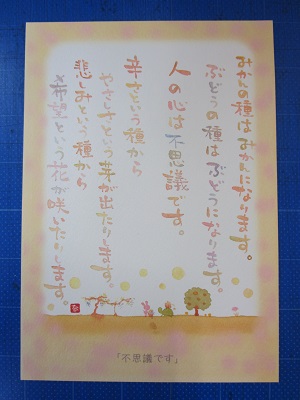 みかんの種はみかんになります。
ぶどうの種はぶどうになります。
人の心は不思議です。
辛さという種から
やさしさという芽が出たりします。
悲しみという種から
希望という花が咲いたりします。
「不思議です」